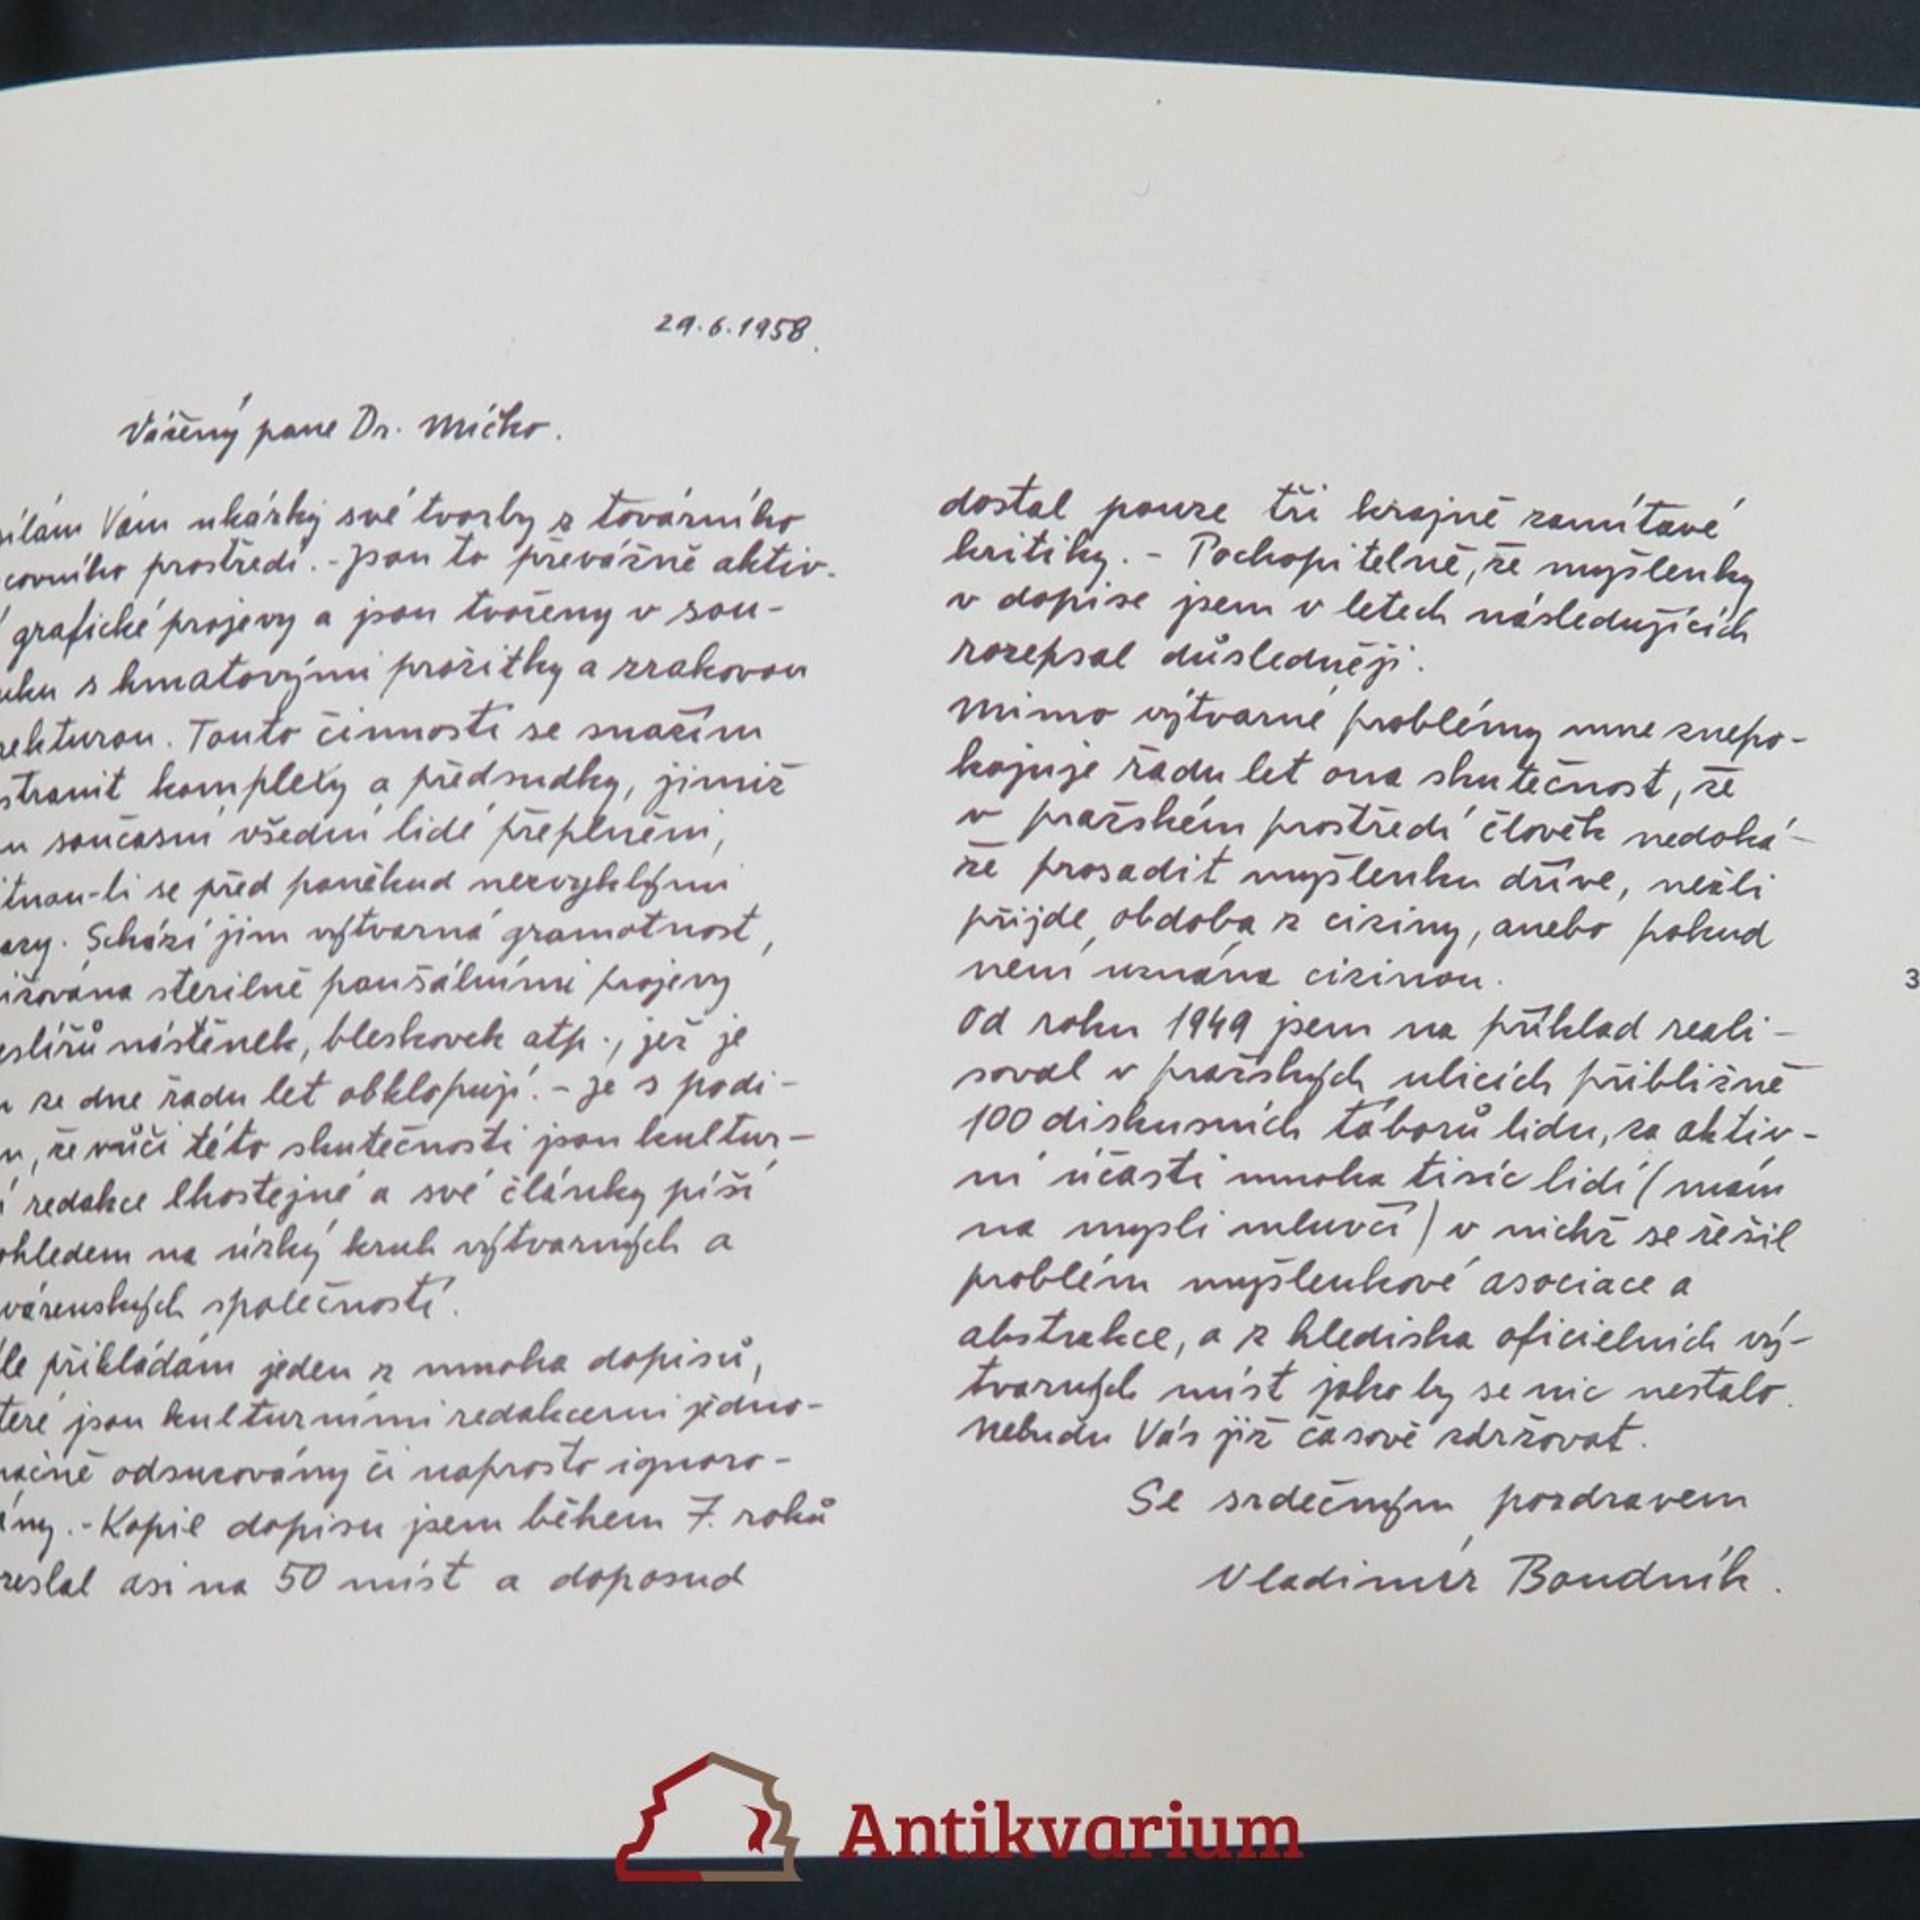 29.6.1958.
Vážený pane Dr. Míčko.
sílám Vám ukázky své tvorby z továrního
covního prostředí. - Jsou to převážně aktiv-
grafické projevy a jsou tvořeny v sou-
s hmatovými prožitky a zrakovou
rekturou. Touto činností se snažím
stranit komplexy a předsudky, jimiž
současní všední lidé přeplněni,
tnou-li se před poněkud nezvyklými
azy. Schází jim výtvarná gramotnost,
izována sterilně paušálními projevy
eslířů nástěnek, bleskovek atp., jež je
ze dne řadu let obklopují. - Je s podi-
, že vůči této skutečnosti jsou kultur-
í redakce lhostejné a své články píší
ohledem na úzký kruh výtvarných a
várenských společností.
le přikládám jeden z mnoha dopisů,
teré jsou kulturními redakcemi jedno-
načně odsuzovány či naprosto ignoro-
ány. - Kopie dopisu jsem během 7. roků
zeslal asi na 50 míst a doposud
dostal pouze tři krajně zamítavé
kritiky. - Pochopitelně, že myšlenky
v dopise jsem v letech následujících
rozepsal důsledněji.
Mimo výtvarné problémy mne znepo-
kojuje řadu let ona skutečnost, že
v pražském prostředí člověk nedoká-
že prosadit myšlenku dříve, nežli
přijde obdoba z ciziny, anebo pokud
není uznána cizinou.
Od roku 1949 jsem na příklad reali-
soval v pražských ulicích přibližně
100 diskusních táborů lidu, za aktiv-
ní účasti mnoha tisíc lidí (mám
na mysli mluvčí) v nichž se řešil
problém myšlenkové asociace a
abstrakce, a z hlediska oficielních vý-
tvarných míst jako by se nic nestalo.
Nebudu Vás již časově zdržovat.
Se srdečným pozdravem
Vladimír Boudník.
3
Antikvarium